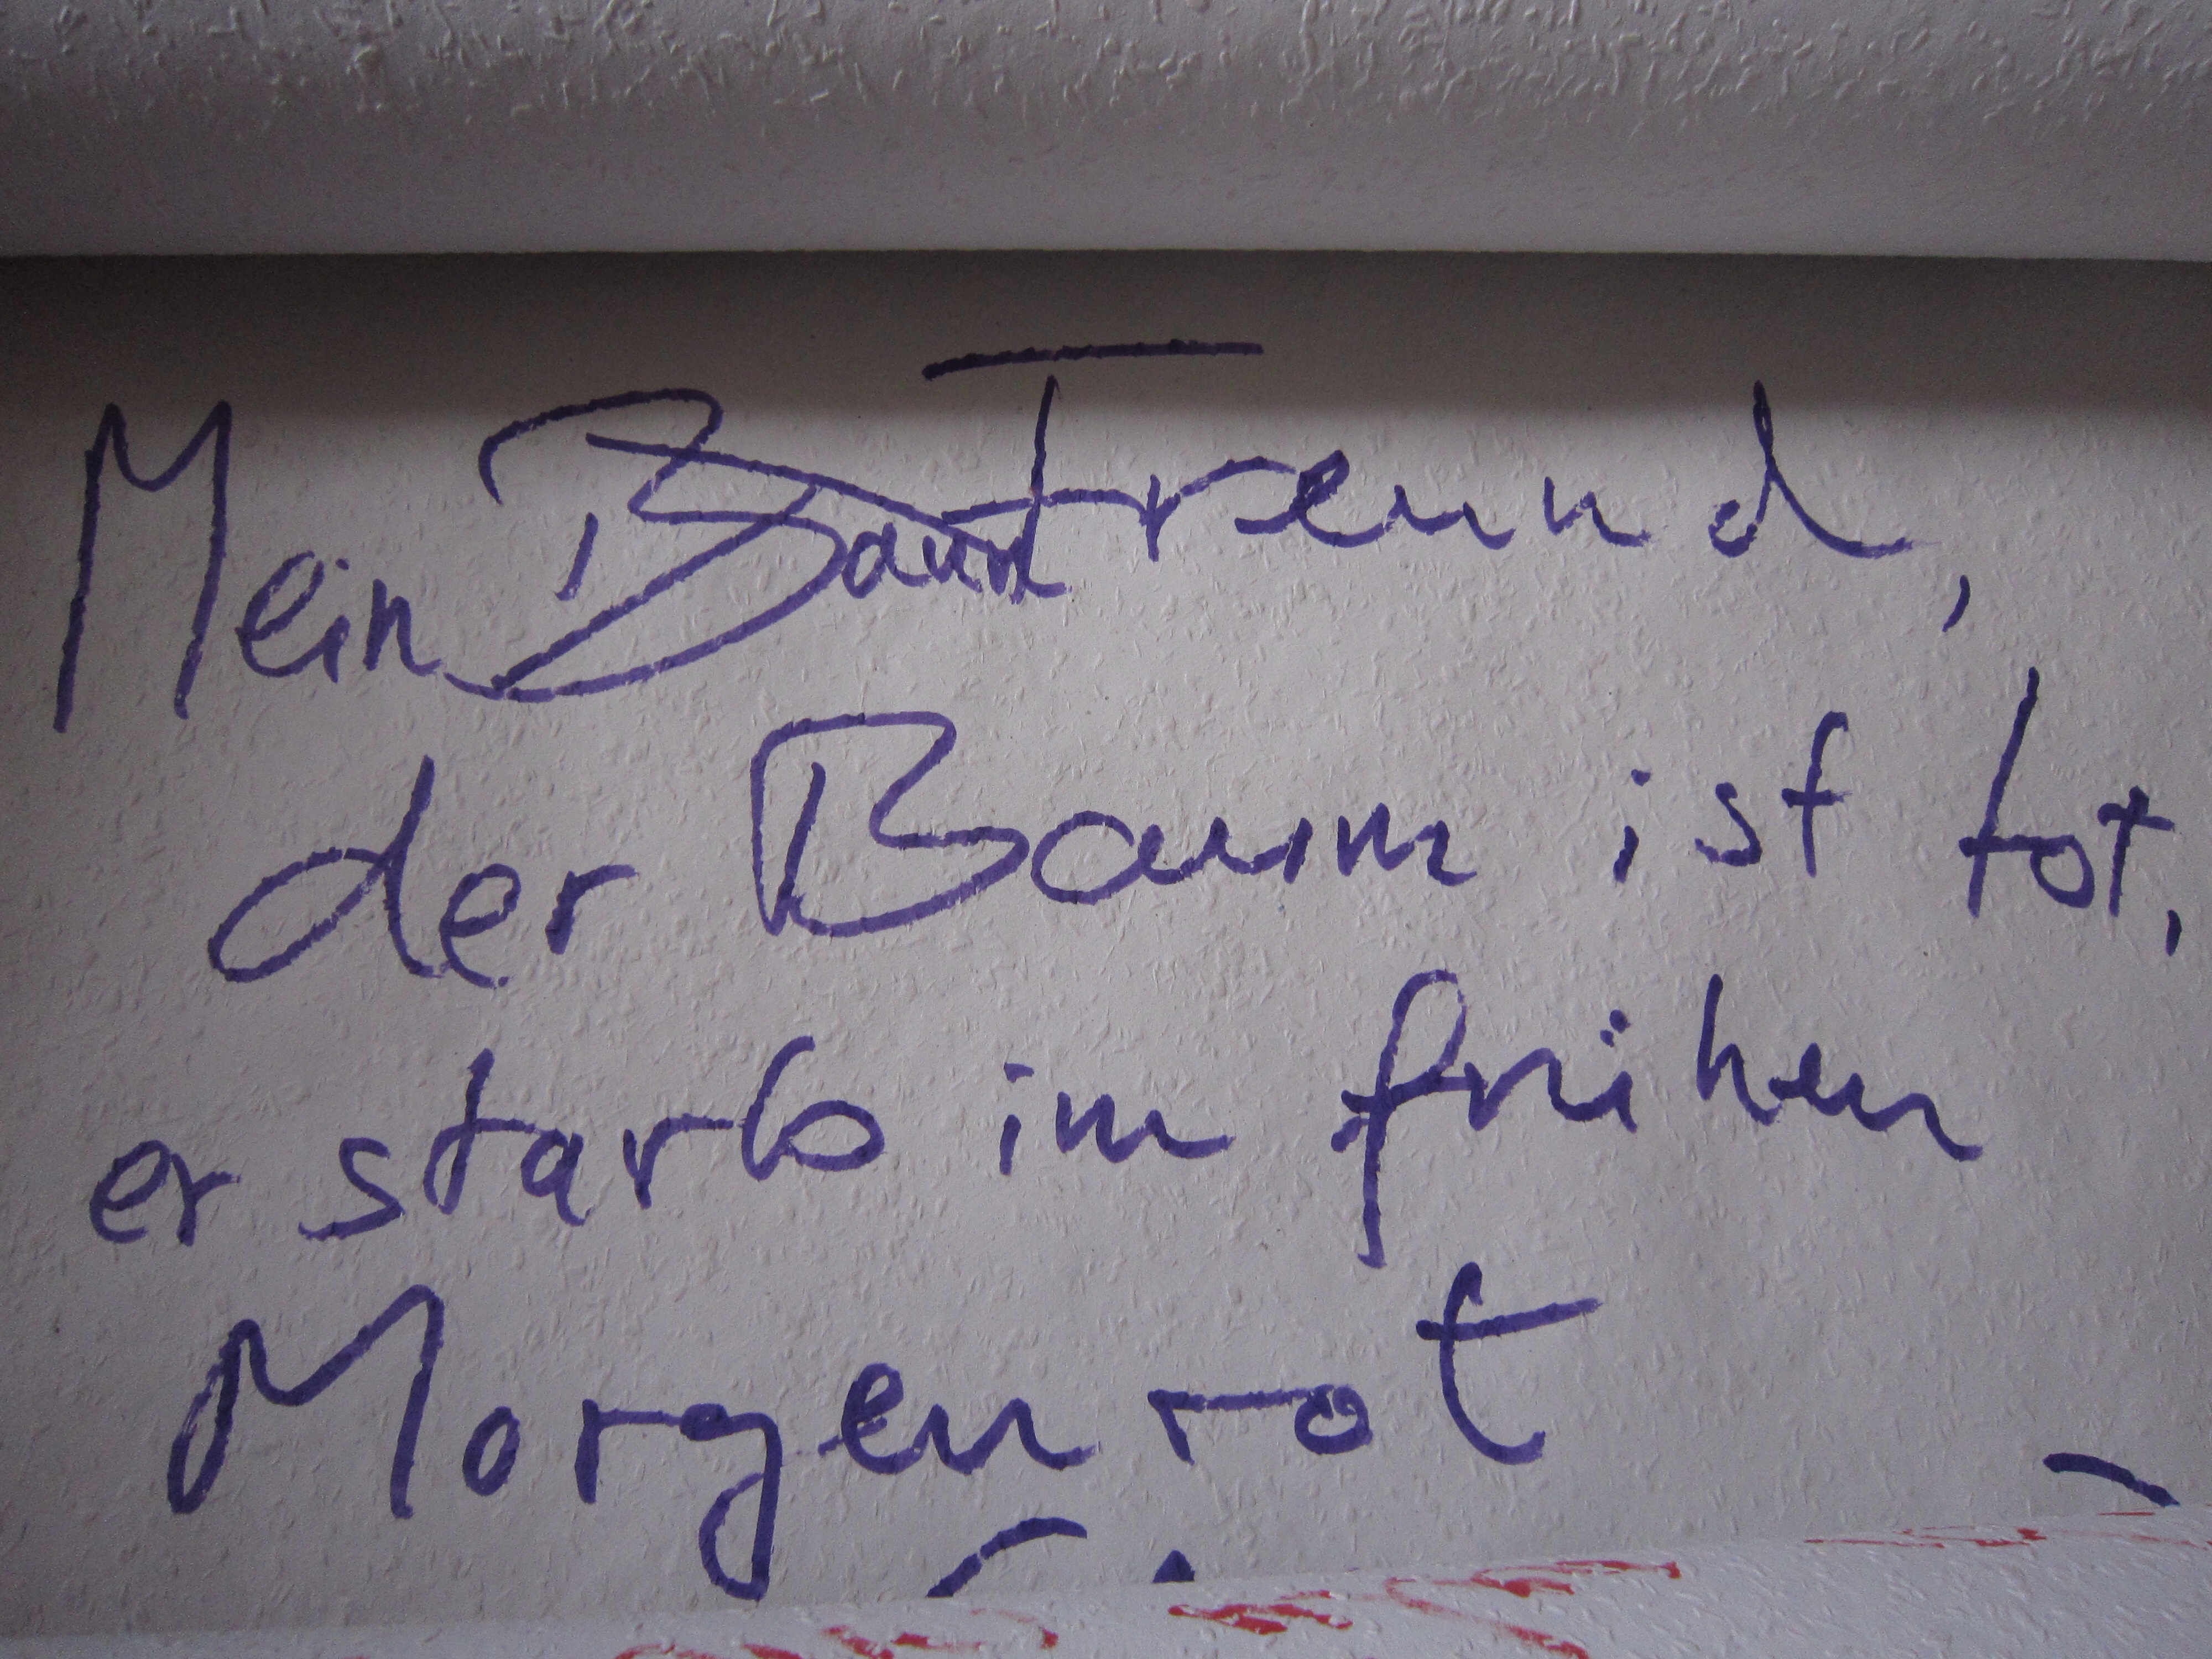 Mein Baum Freund,
der Baum ist tot,
er starb im frühen
Morgenrot